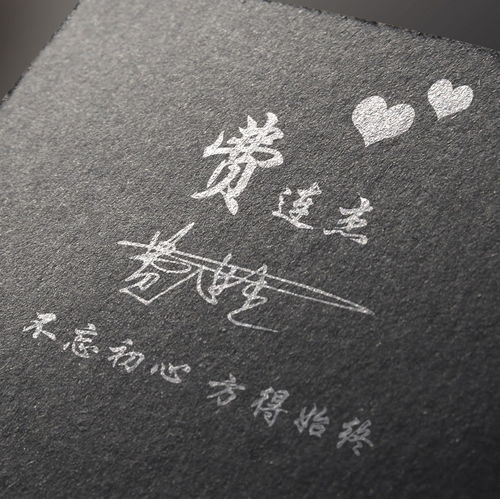 费连杰
不忘初心 方得始终